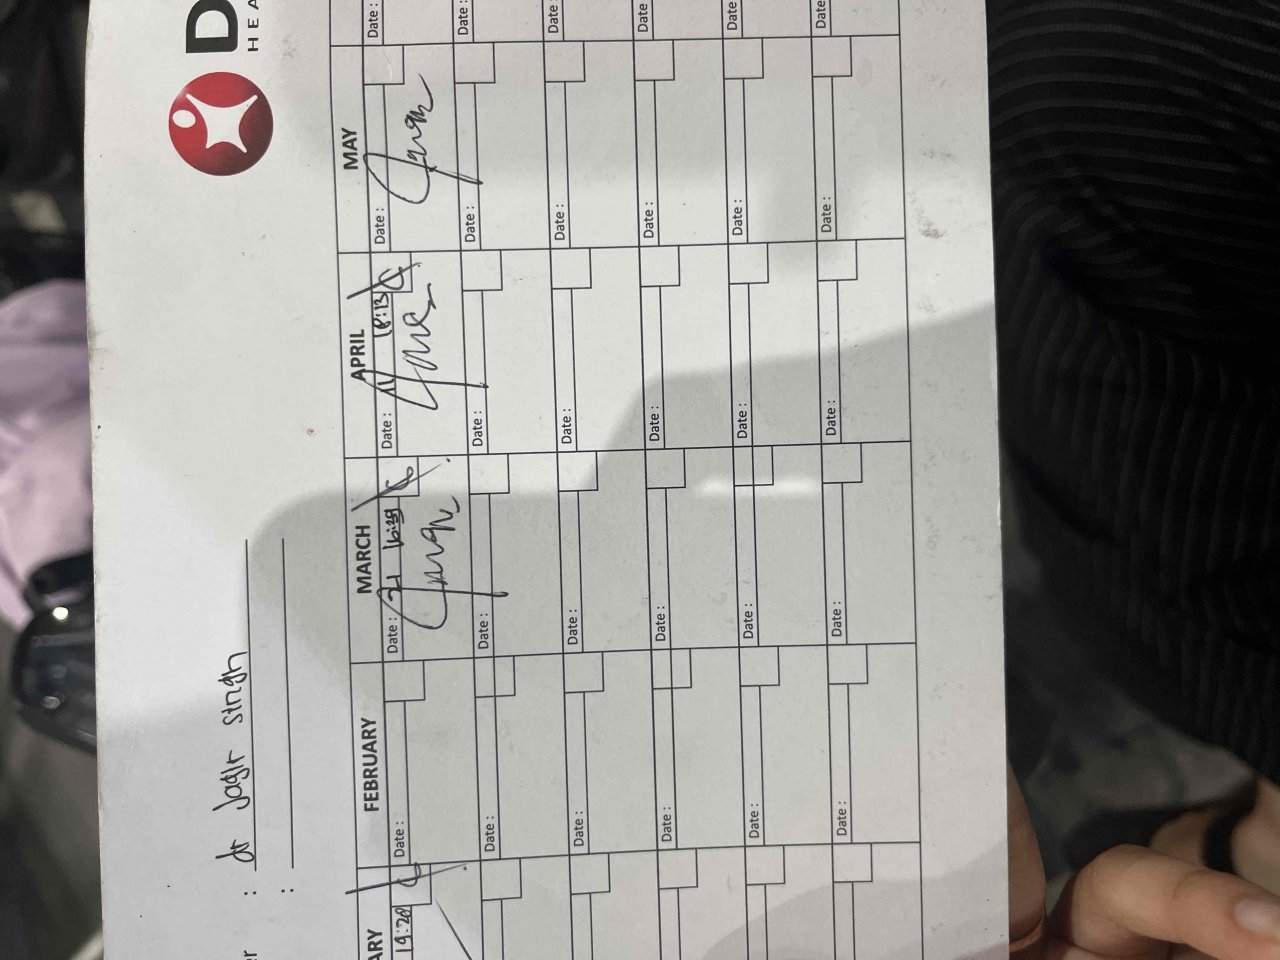 D
HEA
er : dr Jagir singh
:
ARY FEBRUARY MARCH APRIL MAY
19:20 Date : Date : 21 16:39 Date : 11 18:13 Date : Date :
Date : Date : Date : Date : Date :
Date : Date : Date : Date : Date :
Date : Date : Date : Date : Date :
Date : Date : Date : Date : Date :
Date : Date : Date : Date : Date :